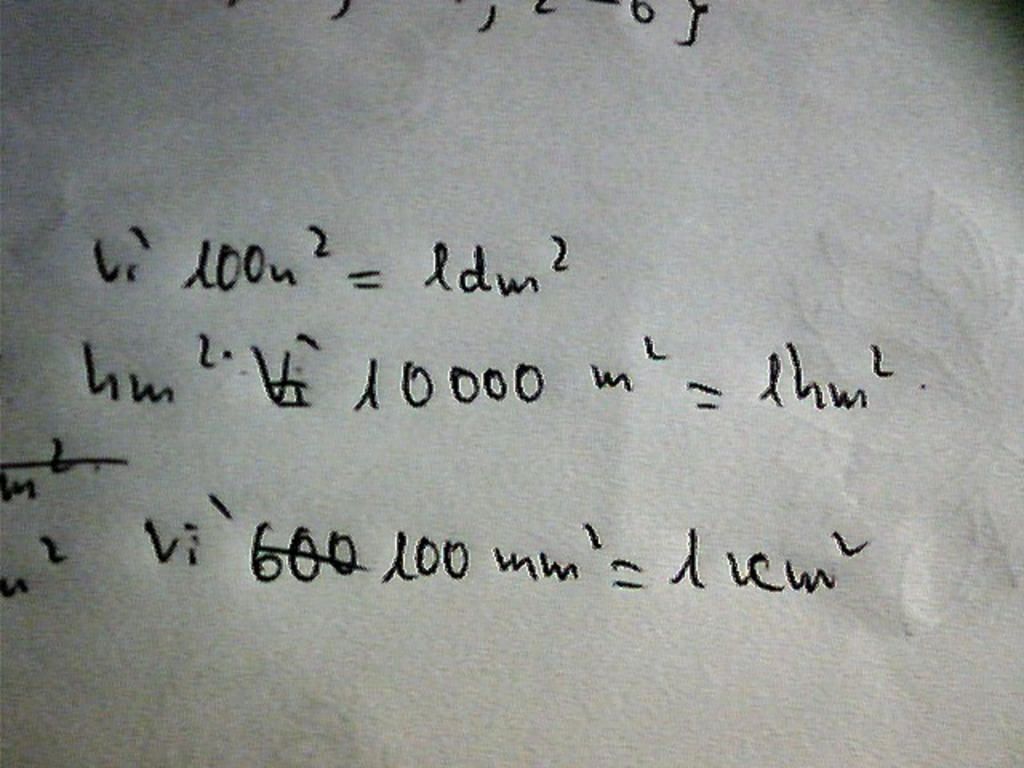 2 - 6 }
Vì 100m² = 1dm²
hm². Vì 10000 m² = 1hm².
m²
m² Vì 600 100 mm² = 1 cm²